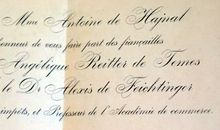 Mme Antoine de Hajnal
onneur de vous faire part des fiançailles
Angélique Reitter de Tomes
le Dr Alexis de Feichtinger
impôts, et Professeur de l'Académie de commerce